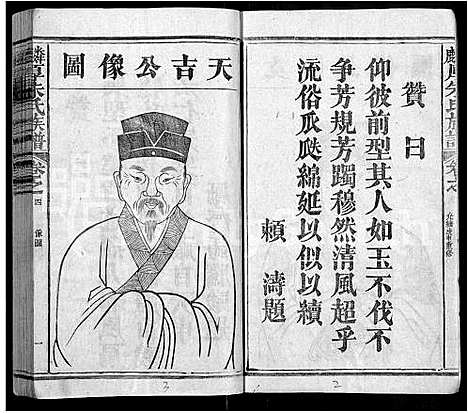 麟厚朱氏族譜
卷之
贊曰
仰彼前型其人如玉不伐不
争芳規芳躅穆然清風超乎
流俗瓜瓞綿延以似以續
賴濤題
2
天吉公像圖
麟厚朱氏族譜
卷之四
像圖
一
3